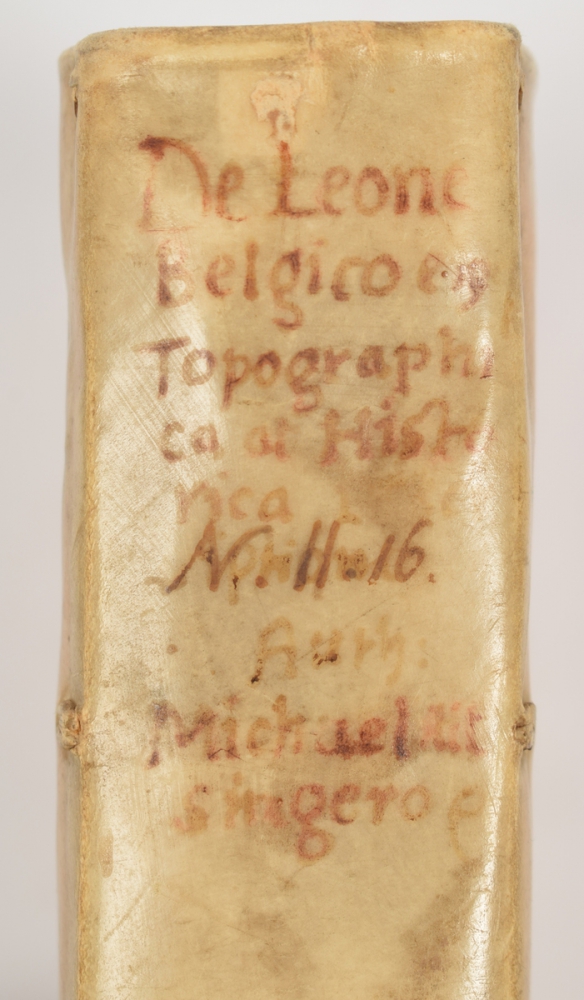 De Leone
Belgico eq
Topographi
ca at Histo
rica
N. H. 16.
Auth:
Michael Ait
singero